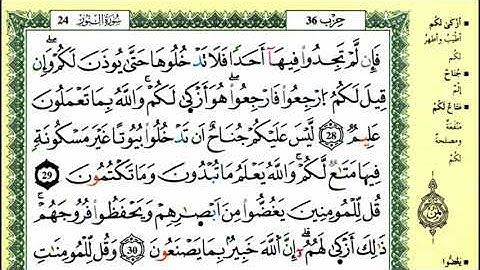 24 سُورَةُ النُّورِ
حِزْب 36
فَإِن لَّمْ تَجِدُوا فِيهَا أَحَدًا فَلَا تَدْخُلُوهَا حَتَّىٰ يُوذَنَ لَكُمْ وَإِن
قِيلَ لَكُمُ ارْجِعُوا فَارْجِعُوا هُوَ أَزْكَىٰ لَكُمْ وَاللَّهُ بِمَا تَعْمَلُونَ
عَلِيمٌ 28 لَّيْسَ عَلَيْكُمْ جُنَاحٌ أَن تَدْخُلُوا بُيُوتًا غَيْرَ مَسْكُونَةٍ
فِيهَا مَتَٰعٌ لَّكُمْ وَاللَّهُ يَعْلَمُ مَا تُبْدُونَ وَمَا تَكْتُمُونَ 29
قُل لِّلْمُومِنِينَ يَغُضُّوا مِنَ ابْصَٰرِهِمْ وَيَحْفَظُوا فُرُوجَهُمْ
ذَٰلِكَ أَزْكَىٰ لَهُمْ إِنَّ اللَّهَ خَبِيرٌ بِمَا يَصْنَعُونَ 30 وَقُل لِّلْمُومِنَٰتِ
أَزْكَىٰ لَكُمْ
أَطْيَبُ وَأَطْهَرُ
لَكُمْ
جُنَاحٌ
إِثْمٌ
مَتَاعٌ لَكُمْ
مَنْفَعَةٌ
وَمَصْلَحَةٌ
لَكُمْ
يَغُضُّوا